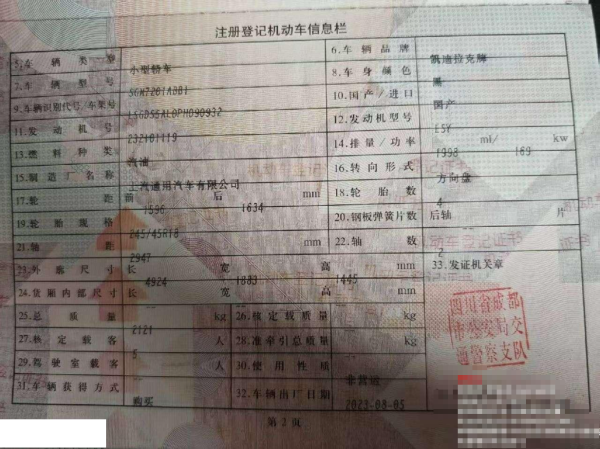 注册登记机动车信息栏
5.车辆类型 小型轿车 6.车辆品牌 凯迪拉克牌
7.车辆型号 SGM7201ABB1 8.车身颜色 黑
9.车辆识别代号/车架号 10.国产/进口 国产
11.发动机号 232101119 12.发动机型号 LSY
13.燃料种类 汽油 14.排量/功率 1998 ml/ 169 kw
15.制造厂名称 上汽通用汽车有限公司 16.转向形式 方向盘
17.轮距 前 1596 后 1634 mm 18.轮胎数 4
19.轮胎规格 245/45R18 20.钢板弹簧片数 后轴 片
21.轴距 2947 mm 22.轴数 2
23.外廓尺寸 长 4924 宽 1883 高 1445 mm 33.发证机关章
24.货厢内部尺寸 长 宽 高 mm
25.总质量 2121 kg 26.核定载质量 kg
27.核定载客 5 人 28.准牵引总质量 kg
29.驾驶室载客 人 30.使用性质 非营运
31.车辆获得方式 购买 32.车辆出厂日期 2023-08-05
四川省成都
市公安局交
通警察支队
第2页